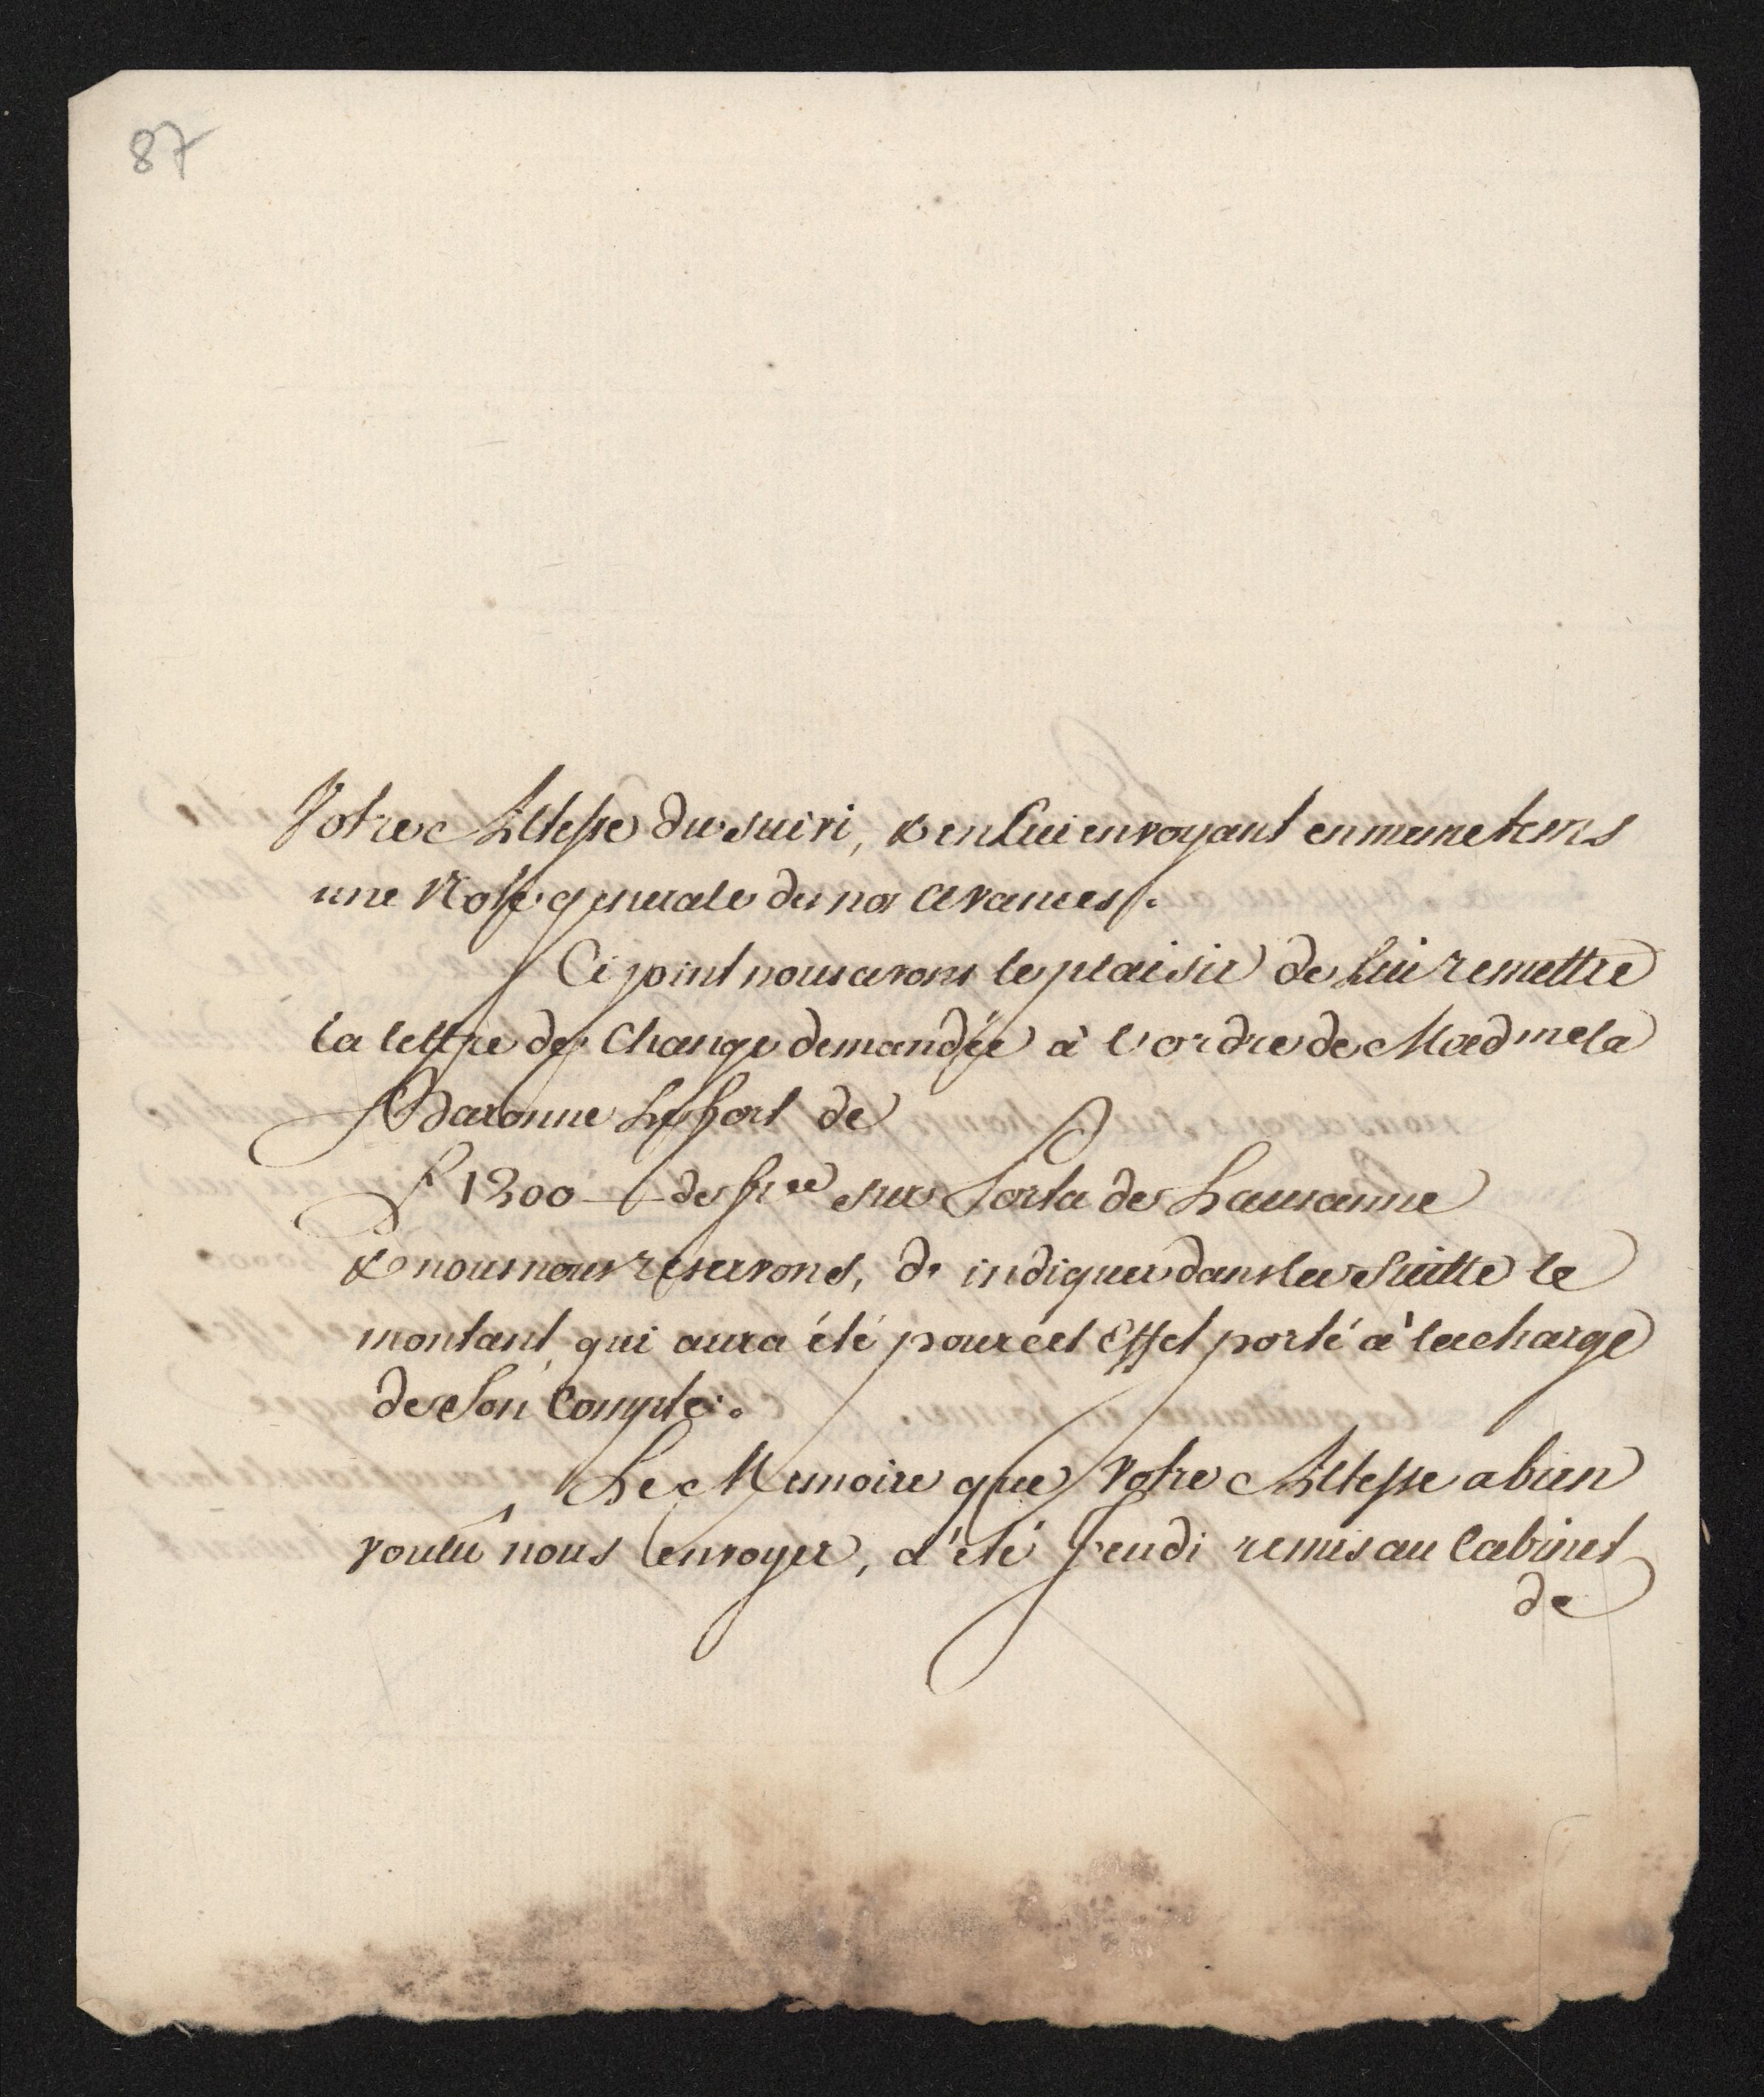 87
Votre Altesse du suivi, & en Lui envoyant en meme tems
une Note generale de nos avances.
Ci joint nous avons le plaisir de Lui remettre
la lettre de Change demandée à l'ordre de Madme la
Baronne Lefort de
£ 1200 — de sur Porta de Lausanne
& nous nous reservons, d'indiquer dans la Suitte le
montant qui aura été pour cet Effet porté à la charge
de Son Compte.
Le Memoire que Votre Altesse a bien
voulû nous envoyer, a été Jeudi remis au Cabinet
de